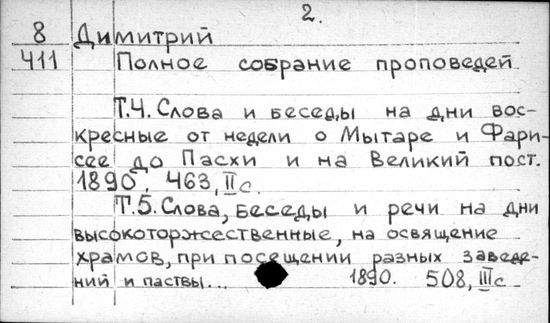 2.
8 Димитрий
411 Полное собрание проповедей
Т.4. Слова и беседы на дни вос-
кресные от недели о Мытаре и Фари-
сее до Пасхи и на Великий пост.
1890. 463, II с.
Т.5. Слова, беседы и речи на дни
высокоторжественные, на освящение
храмов, при посещении разных заведе-
ний и паствы... 1890. 508, III с.